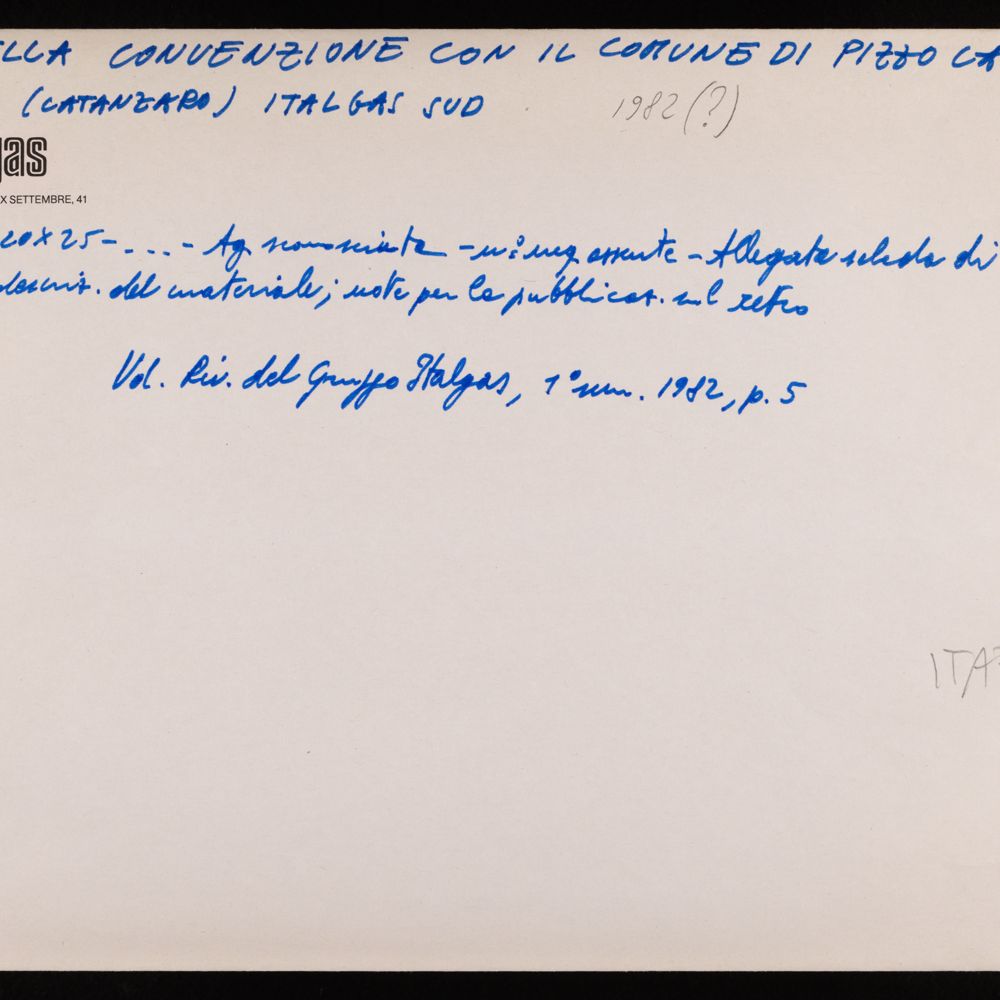 ELLA CONVENZIONE CON IL COMUNE DI PIZZO CA
(CATANZARO) ITALGAS SUD 1982 (?)
gas
X SETTEMBRE, 41
20X25-...- Ag sconosciuta - n° neg assente - Allegata scheda di
descriz. del materiale; note per la pubblicaz. sul retro
Vd. Riv. del Gruppo Italgas, 1° num. 1982, p. 5
ITA